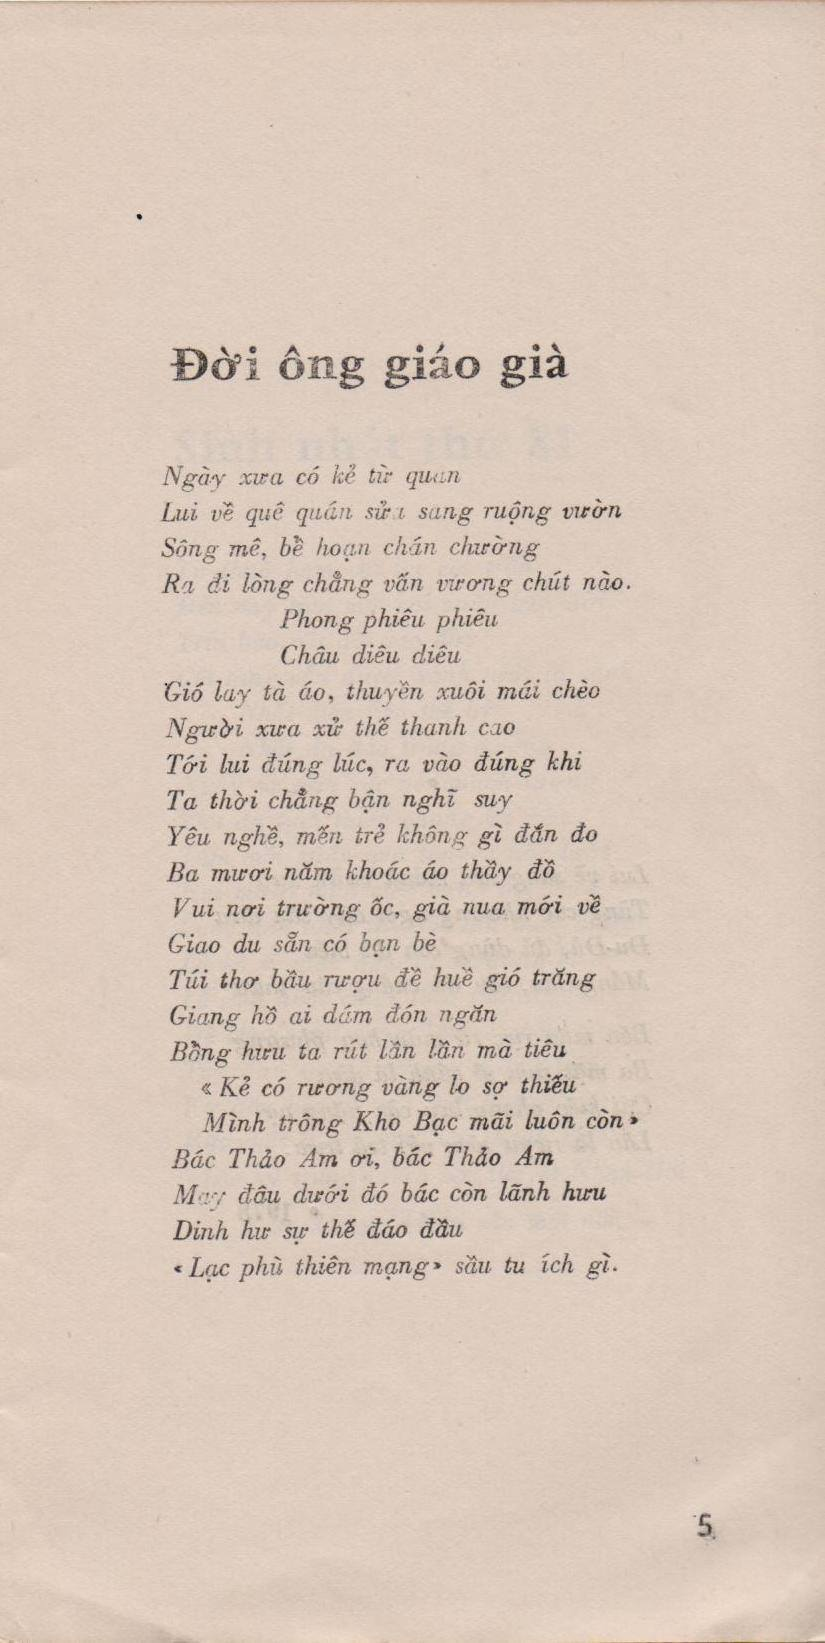 Đời ông giáo già
Ngày xưa có kẻ từ quan
Lui về quê quán sửa sang ruộng vườn
Sông mê, bể hoạn chán chường
Ra đi lòng chẳng vấn vương chút nào.
Phong phiêu phiêu
Châu diêu diêu
Gió lay tà áo, thuyền xuôi mái chèo
Người xưa xử thế thanh cao
Tới lui đúng lúc, ra vào đúng khi
Ta thời chẳng bận nghĩ suy
Yêu nghề, mến trẻ không gì đắn đo
Ba mươi năm khoác áo thầy đồ
Vui nơi trường ốc, già nua mới về
Giao du sẵn có bạn bè
Túi thơ bầu rượu đề huề gió trăng
Giang hồ ai dám đón ngăn
Bổng hưu ta rút lần lần mà tiêu
« Kẻ có rương vàng lo sợ thiếu
Mình trông Kho Bạc mãi luôn còn »
Bác Thảo Am ơi, bác Thảo Am
May đâu dưới đó bác còn lãnh hưu
Dinh hư sự thế đáo đầu
« Lạc phù thiên mạng » sầu tu ích gì.
5